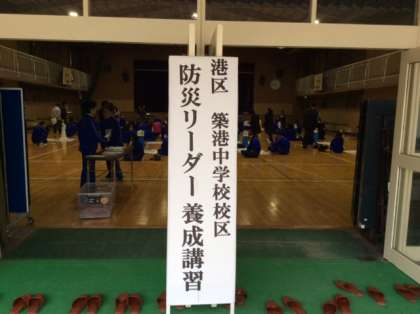 港区 築港中学校校区
防災リーダー養成講習